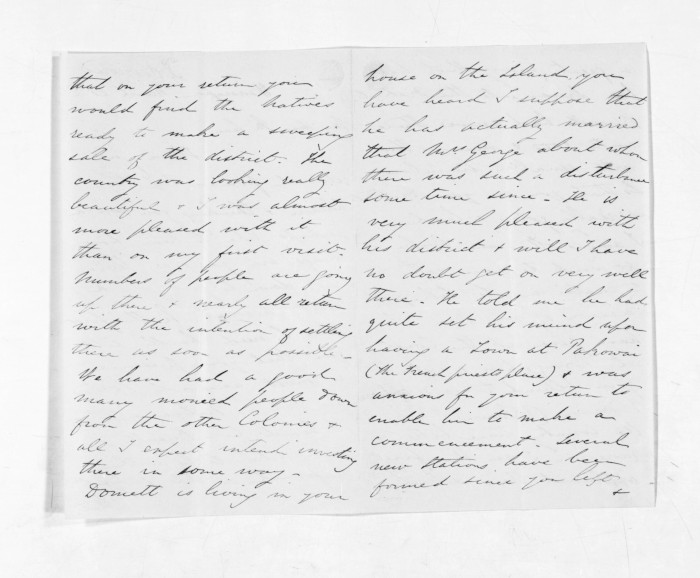 that on your return you
would find the Natives
ready to make a sweeping
sale of the district. The
country was looking really
beautiful & I was almost
more pleased with it
than on my first visit.
Numbers of people are going
up there & nearly all return
with the intention of settling
there as soon as possible –
We have had a good
many monied people down
from the other Colonies &
all I expect intend investing
there in some way –
Domett is living in your
house on the Island, you
have heard I suppose that
he has actually married
that Mrs George about whom
there was such a disturbance
some time since – He is
very much pleased with
his district & will I have
no doubt get on very well
there – He told me he had
quite set his mind upon
having a Town at Pakowai
(The French priests place) & was
anxious for your return to
enable him to make a
commencement. Several
new Stations have been
formed since you left
&